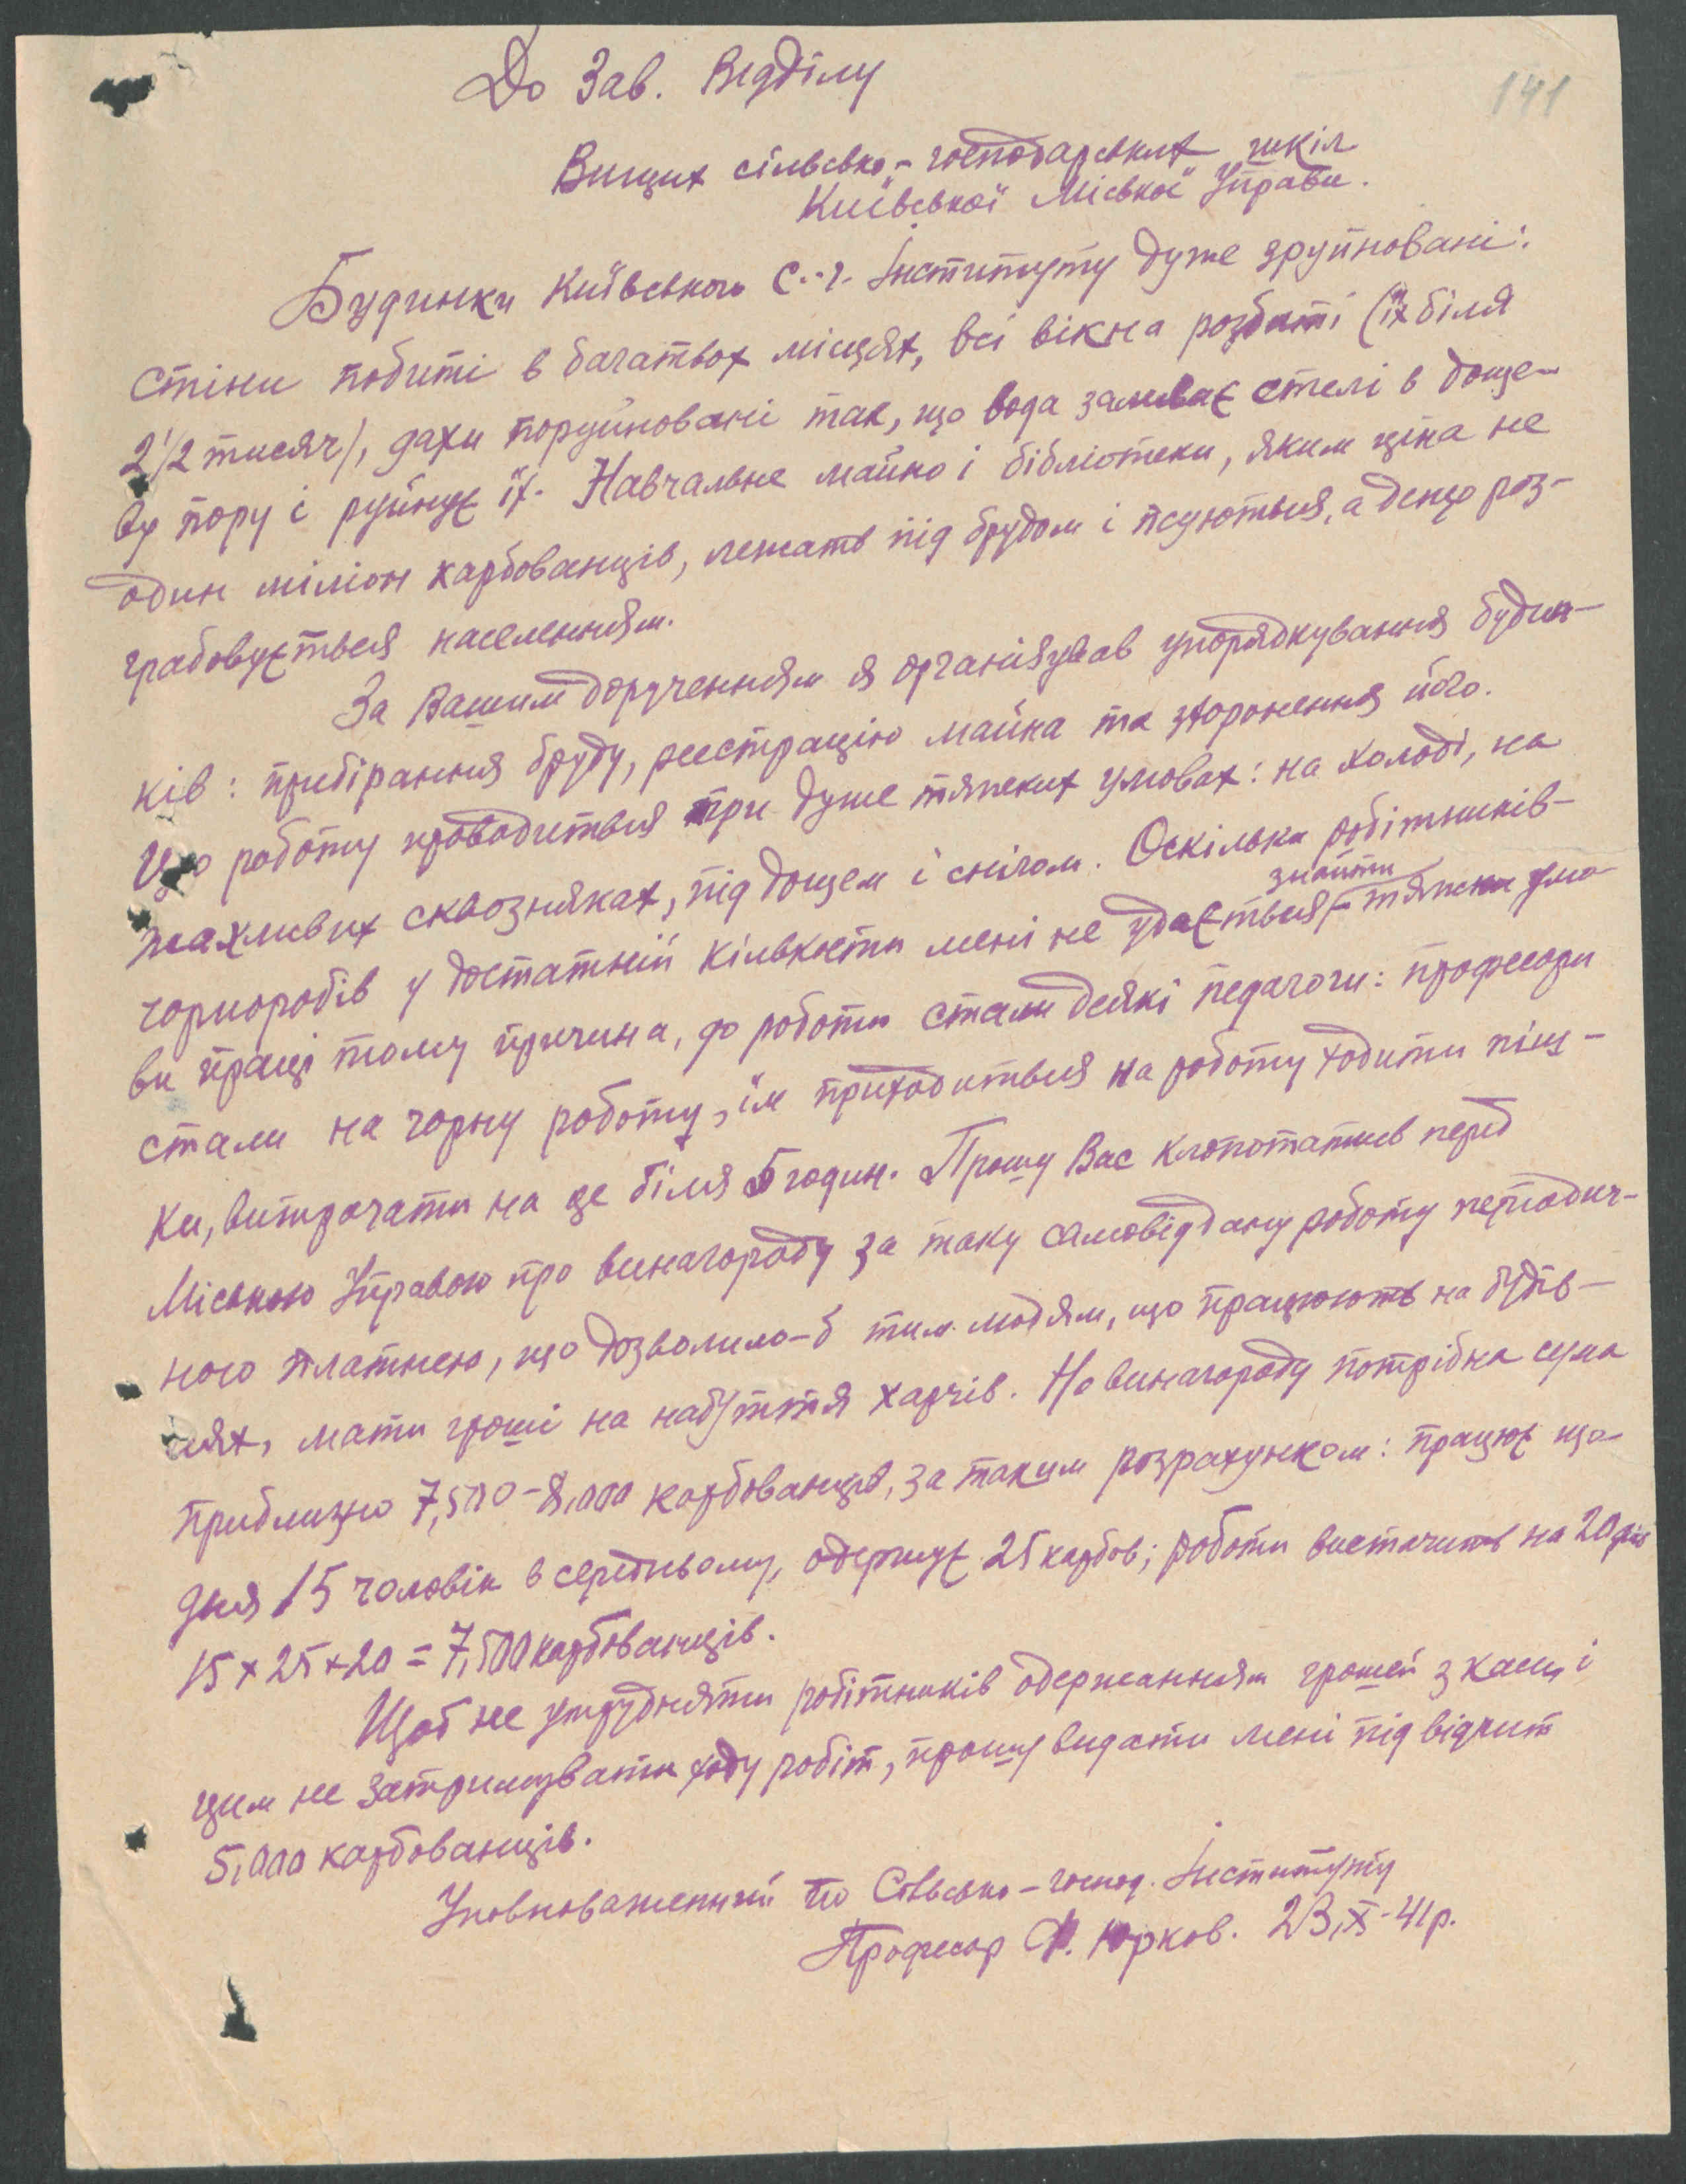 141
До Зав. Відділу
Вищих сільсько-господарських шкіл
Київської Міської Управи.
Будинки Київського С.-г. Інституту дуже зруйновані:
стіни побиті в багатьох місцях, всі вікна розбиті (їх біля
2 1/2 тисяч), дахи поруйновані так, що вода заливає стелі в доще-
ву пору і руйнує їх. Навчальне майно і бібліотеки, яким ціна не
один міліон карбованців, лежать під брудом і псуються, а дещо роз-
грабовується населенням.
За Вашим дорученням я організував упорядкування будин-
ків: прибірання бруду, реєстрацію майна та зхоронення його.
Цю роботу проводиться при дуже тяжких умовах: на холоді, на
жахливих сквозняках, під дощем і снігом. Оскільки робітників-
чорноробів у достатній кількости мені не удається знайти - тяжки умо-
ви праці тому причина, до роботи стали деякі педагоги: професори
стали на чорну роботу, їм приходиться на роботу ходити піш-
ки, витрачати на це біля 5 годин. Прошу Вас клопотатись перед
Міською Управою про винагороду за таку самовіддану роботу періодич-
ною платнею, що дозволило-б тим людям, що працюють на будів-
лях, мати гроші на набуття харчів. На винагороду потрібна сума
приблизно 7,500-8,000 карбованців, за таким розрахунком: працює що-
дня 15 чоловік в середньому, одержує 25 карбов; роботи вистачить на 20 днів
15 × 25 × 20 = 7,500 карбованців.
Щоб не утрудняти робітників одержанням грошей з каси, і
цим не затримувати ходу робіт, прошу видати мені під відчит
5,000 карбованців.
Уповноважений по Сільсько-господ. Інституту
Професор Юрков. 23,X-41р.